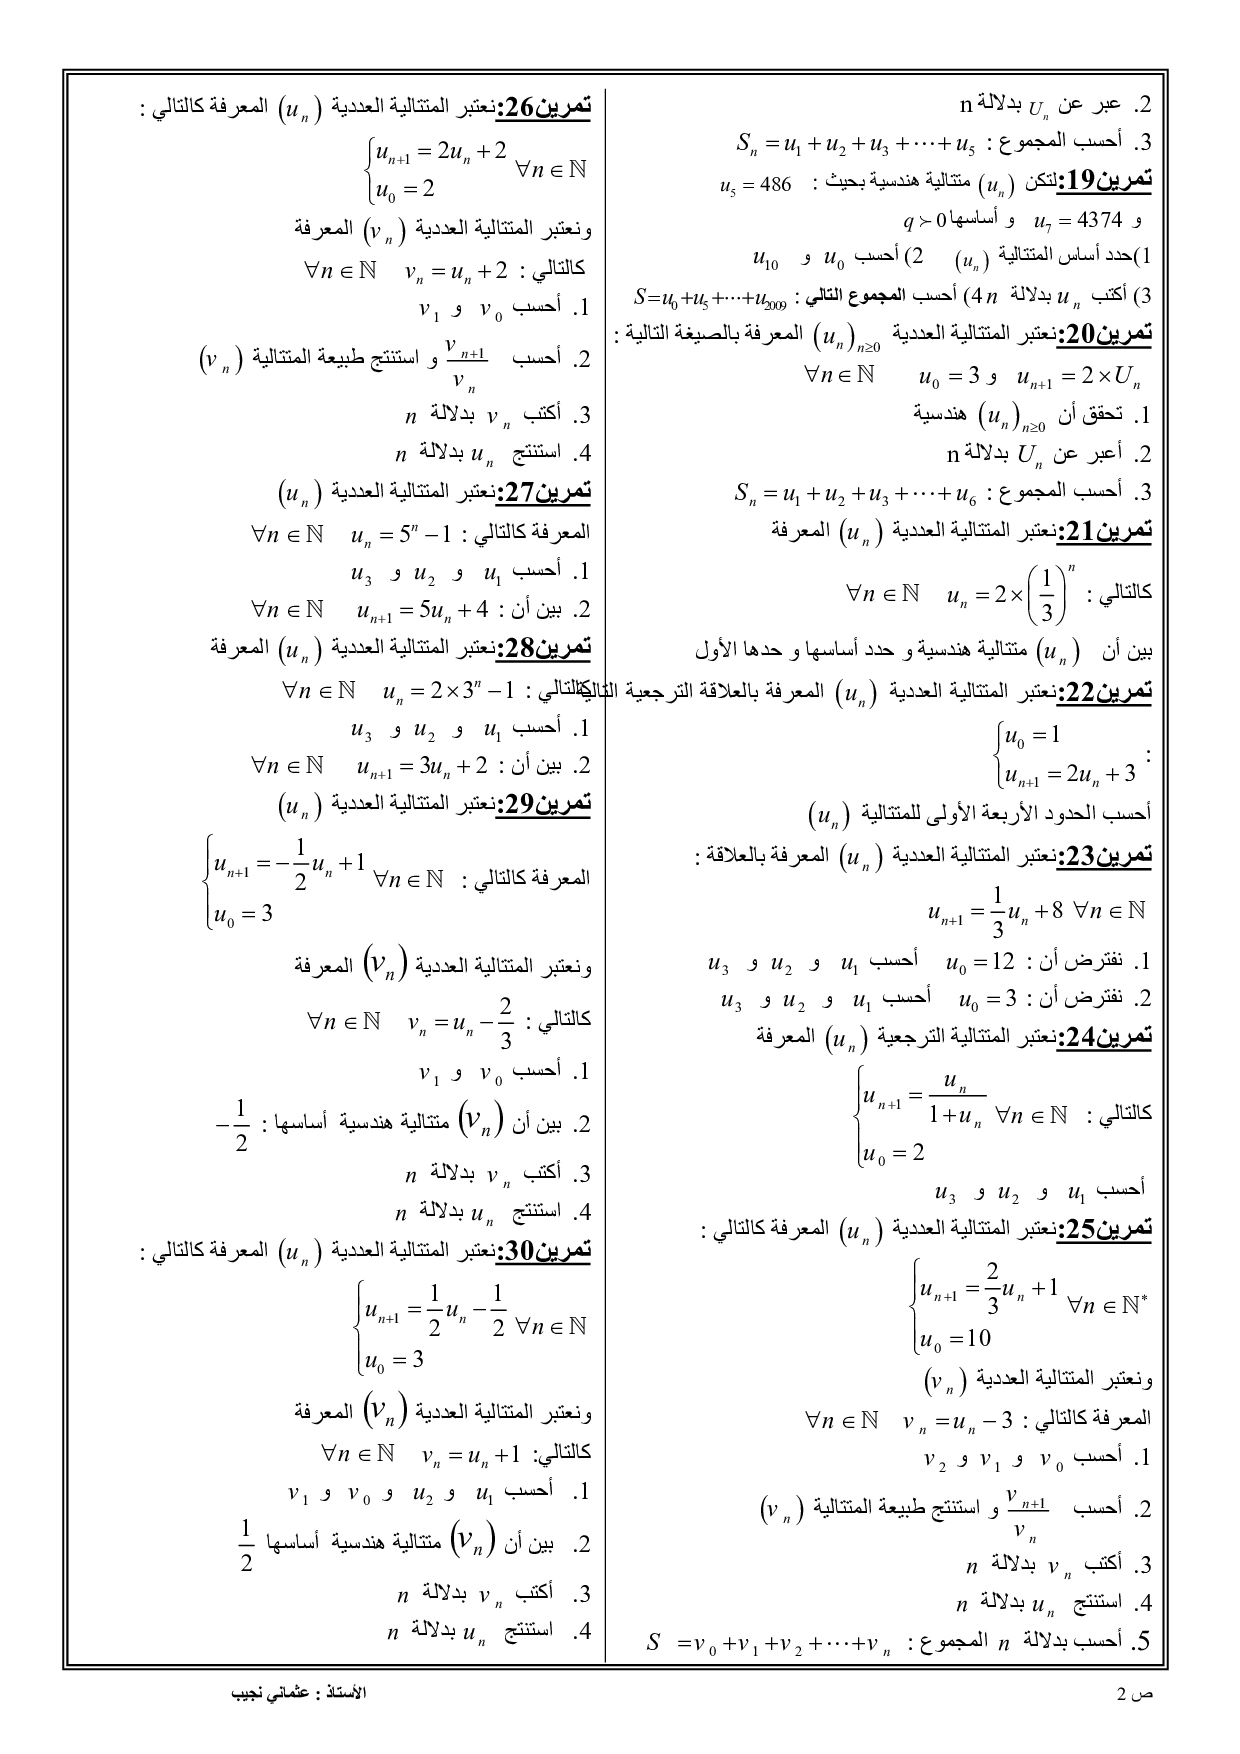 2. عبر عن Uₙ بدلالة n
3. أحسب المجموع : Sₙ = u₁ + u₂ + u₃ + ⋯ + u₅
تمرين19:لتكن (uₙ) متتالية هندسية بحيث : u₅ = 486
و u₇ = 4374 و أساسها q ≻ 0
1)حدد أساس المتتالية (uₙ) 2) أحسب u₀ و u₁₀
3) أكتب uₙ بدلالة n 4) أحسب المجموع التالي : S=u₀+u₅+⋯+u₂₀₀₉
تمرين20:نعتبر المتتالية العددية (uₙ)ₙ≥₀ المعرفة بالصيغة التالية :
uₙ₊₁ = 2×Uₙ و u₀ = 3 ∀n∈ℕ
1. تحقق أن (uₙ)ₙ≥₀ هندسية
2. أعبر عن Uₙ بدلالة n
3. أحسب المجموع : Sₙ = u₁ + u₂ + u₃ + ⋯ + u₆
تمرين21:نعتبر المتتالية العددية (uₙ) المعرفة
كالتالي : uₙ = 2×(1/3)ⁿ ∀n ∈ ℕ
بين أن (uₙ) متتالية هندسية و حدد أساسها و حدها الأول
تمرين22:نعتبر المتتالية العددية (uₙ) المعرفة بالعلاقة الترجعية التالية
: { u₀ = 1
uₙ₊₁ = 2uₙ + 3
أحسب الحدود الأربعة الأولى للمتتالية (uₙ)
تمرين23:نعتبر المتتالية العددية (uₙ) المعرفة بالعلاقة :
uₙ₊₁ = 1/3 uₙ + 8 ∀n ∈ ℕ
1. نفترض أن : u₀ = 12 أحسب u₁ و u₂ و u₃
2. نفترض أن : u₀ = 3 أحسب u₁ و u₂ و u₃
تمرين24:نعتبر المتتالية الترجعية (uₙ) المعرفة
كالتالي : { uₙ₊₁ = uₙ/(1+uₙ) ∀n ∈ ℕ
u₀ = 2
أحسب u₁ و u₂ و u₃
تمرين25:نعتبر المتتالية العددية (uₙ) المعرفة كالتالي :
{ uₙ₊₁ = 2/3 uₙ + 1 ∀n ∈ ℕ*
u₀ = 10
ونعتبر المتتالية العددية (vₙ)
المعرفة كالتالي : vₙ = uₙ − 3 ∀n ∈ ℕ
1. أحسب v₀ و v₁ و v₂
2. أحسب vₙ₊₁/vₙ و استنتج طبيعة المتتالية (vₙ)
3. أكتب vₙ بدلالة n
4. استنتج uₙ بدلالة n
5. أحسب بدلالة n المجموع : S = v₀ + v₁ + v₂ + ⋯ + vₙ
تمرين26:نعتبر المتتالية العددية (uₙ) المعرفة كالتالي :
{ uₙ₊₁ = 2uₙ + 2 ∀n ∈ ℕ
u₀ = 2
ونعتبر المتتالية العددية (vₙ) المعرفة
كالتالي : vₙ = uₙ + 2 ∀n ∈ ℕ
1. أحسب v₀ و v₁
2. أحسب vₙ₊₁/vₙ و استنتج طبيعة المتتالية (vₙ)
3. أكتب vₙ بدلالة n
4. استنتج uₙ بدلالة n
تمرين27:نعتبر المتتالية العددية (uₙ)
المعرفة كالتالي : uₙ = 5ⁿ − 1 ∀n ∈ ℕ
1. أحسب u₁ و u₂ و u₃
2. بين أن : uₙ₊₁ = 5uₙ + 4 ∀n ∈ ℕ
تمرين28:نعتبر المتتالية العددية (uₙ) المعرفة
كالتالي : uₙ = 2×3ⁿ − 1 ∀n ∈ ℕ
1. أحسب u₁ و u₂ و u₃
2. بين أن : uₙ₊₁ = 3uₙ + 2 ∀n ∈ ℕ
تمرين29:نعتبر المتتالية العددية (uₙ)
المعرفة كالتالي : { uₙ₊₁ = −1/2 uₙ + 1 ∀n ∈ ℕ
u₀ = 3
ونعتبر المتتالية العددية (vₙ) المعرفة
كالتالي : vₙ = uₙ − 2/3 ∀n ∈ ℕ
1. أحسب v₀ و v₁
2. بين أن (vₙ) متتالية هندسية أساسها : −1/2
3. أكتب vₙ بدلالة n
4. استنتج uₙ بدلالة n
تمرين30:نعتبر المتتالية العددية (uₙ) المعرفة كالتالي :
{ uₙ₊₁ = 1/2 uₙ − 1/2 ∀n ∈ ℕ
u₀ = 3
ونعتبر المتتالية العددية (vₙ) المعرفة
كالتالي: vₙ = uₙ + 1 ∀n ∈ ℕ
1. أحسب u₁ و u₂ و v₀ و v₁
2. بين أن (vₙ) متتالية هندسية أساسها 1/2
3. أكتب vₙ بدلالة n
4. استنتج uₙ بدلالة n
ص 2
الأستاذ : عثماني نجيب